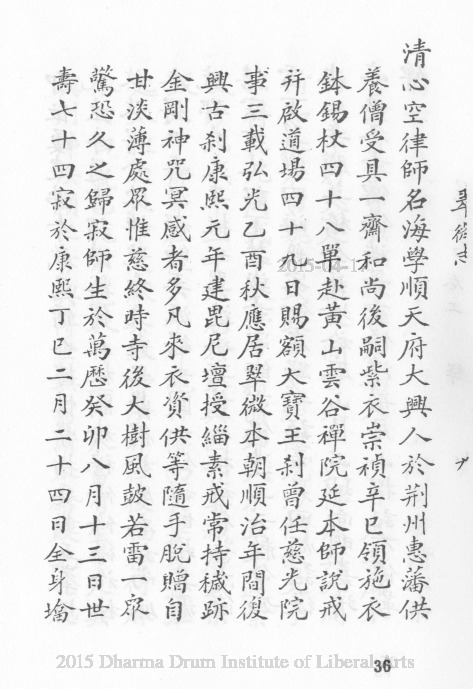 清心空律師名海學順天府大興人於荆州惠藩供
養僧受具一齋和尚後嗣紫衣崇禎辛巳領施衣
鉢錫杖四十八單赴黃山雲谷禪院延本師說戒
幷啟道場四十九日賜額大寶王刹曾任慈光院
事三載弘光乙酉秋應居翠微本朝順治年間復
興古刹康熙元年建毘尼壇授緇素戒常持穢跡
金剛神咒冥感者多凡來衣資供等隨手脫贈自
甘淡薄處眾惟慈終時寺後大樹風皷若雷一眾
驚恐久之歸寂師生於萬歷癸卯八月十三日世
壽七十四寂於康熙丁巳二月二十四日全身墖
翠微志
2015-04-17
36
2015 Dharma Drum Institute of Liberal Arts